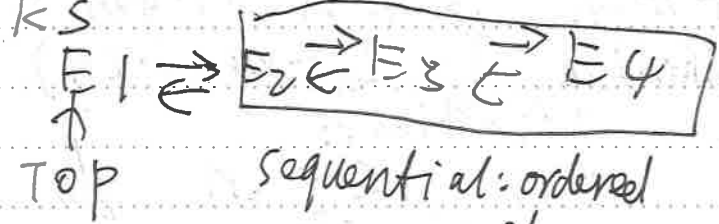 KS
E1 ⇄ E2 ⇄ E3 ⇄ E4
↑
TOP sequential: ordered